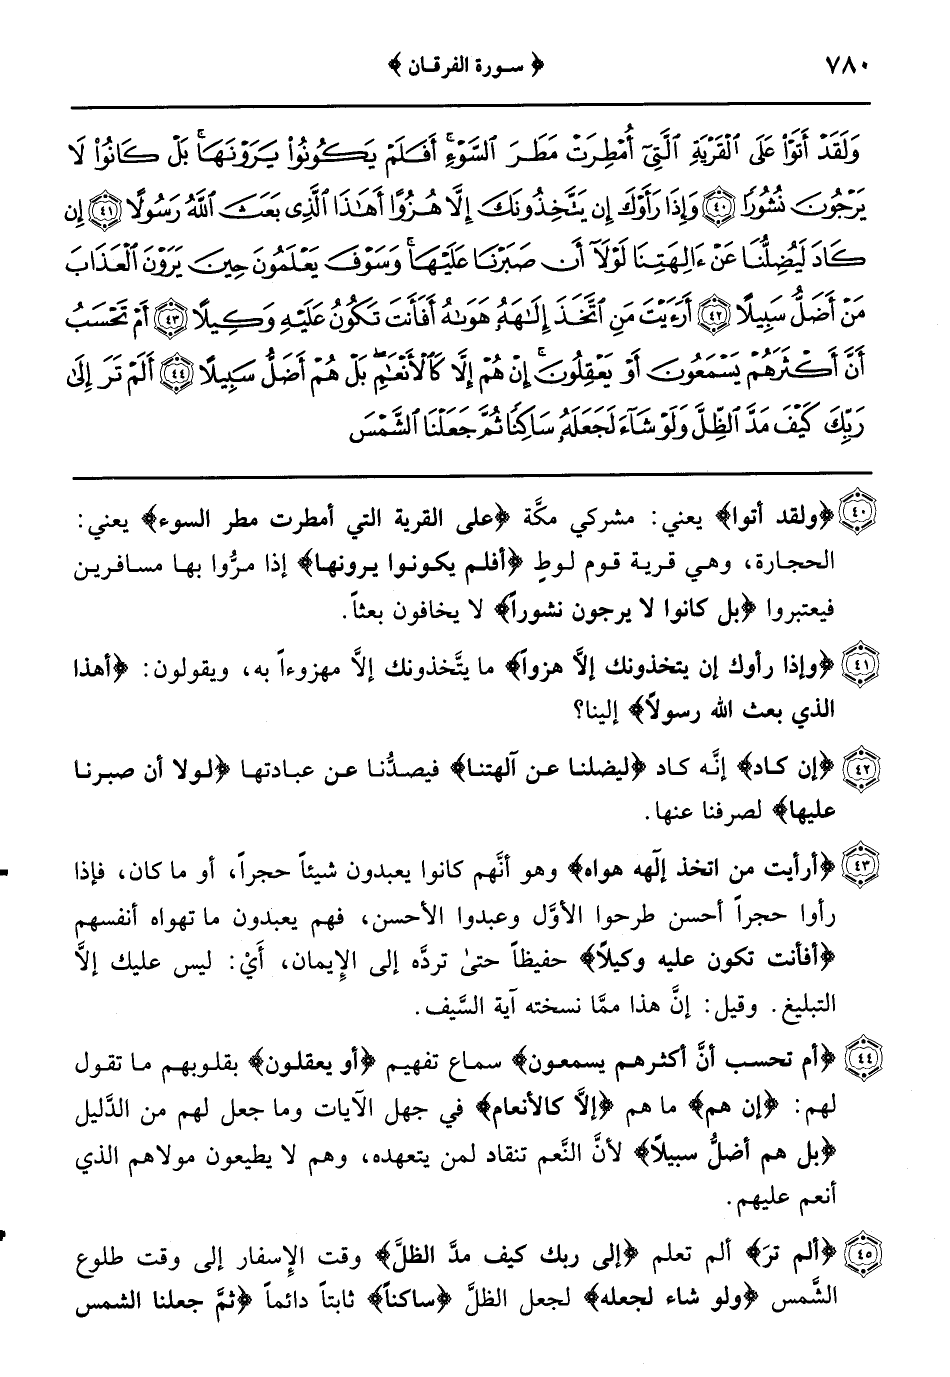 ٧٨٠ ﴿ سورة الفرقان ﴾
وَلَقَدْ أَتَوْا۟ عَلَى ٱلْقَرْيَةِ ٱلَّتِىٓ أُمْطِرَتْ مَطَرَ ٱلسَّوْءِ ۚ أَفَلَمْ يَكُونُوا۟ يَرَوْنَهَا ۚ بَلْ كَانُوا۟ لَا
يَرْجُونَ نُشُورًا ٤٠ وَإِذَا رَأَوْكَ إِن يَتَّخِذُونَكَ إِلَّا هُزُوًا أَهَٰذَا ٱلَّذِى بَعَثَ ٱللَّهُ رَسُولًا ٤١ إِن
كَادَ لَيُضِلُّنَا عَنْ ءَالِهَتِنَا لَوْلَآ أَن صَبَرْنَا عَلَيْهَا ۚ وَسَوْفَ يَعْلَمُونَ حِينَ يَرَوْنَ ٱلْعَذَابَ
مَنْ أَضَلُّ سَبِيلًا ٤٢ أَرَءَيْتَ مَنِ ٱتَّخَذَ إِلَٰهَهُۥ هَوَىٰهُ أَفَأَنتَ تَكُونُ عَلَيْهِ وَكِيلًا ٤٣ أَمْ تَحْسَبُ
أَنَّ أَكْثَرَهُمْ يَسْمَعُونَ أَوْ يَعْقِلُونَ ۚ إِنْ هُمْ إِلَّا كَٱلْأَنْعَٰمِ ۖ بَلْ هُمْ أَضَلُّ سَبِيلًا ٤٤ أَلَمْ تَرَ إِلَىٰ
رَبِّكَ كَيْفَ مَدَّ ٱلظِّلَّ وَلَوْ شَآءَ لَجَعَلَهُۥ سَاكِنًا ثُمَّ جَعَلْنَا ٱلشَّمْسَ
٤٠ ﴿ولقد أتوا﴾ يعني: مشركي مكَّة ﴿على القرية التي أمطرت مطر السوء﴾ يعني:
الحجارة، وهي قرية قوم لوطٍ ﴿أفلم يكونوا يرونها﴾ إذا مرُّوا بها مسافرين
فيعتبروا ﴿بل كانوا لا يرجون نشوراً﴾ لا يخافون بعثاً.
٤١ ﴿وإذا رأوك إن يتخذونك إلَّا هزواً﴾ ما يتَّخذونك إلَّا مهزوءاً به، ويقولون: ﴿أهذا
الذي بعث الله رسولاً﴾ إلينا؟
٤٢ ﴿إن كاد﴾ إنَّه كاد ﴿ليضلنا عن آلهتنا﴾ فيصدُّنا عن عبادتها ﴿لولا أن صبرنا
عليها﴾ لصرفنا عنها.
٤٣ ﴿أرأيت من اتخذ إلٰهه هواه﴾ وهو أنَّهم كانوا يعبدون شيئاً حجراً، أو ما كان، فإذا
رأوا حجراً أحسن طرحوا الأوَّل وعبدوا الأحسن، فهم يعبدون ما تهواه أنفسهم
﴿أفأنت تكون عليه وكيلاً﴾ حفيظاً حتىٰ تردَّه إلى الإِيمان، أَيْ: ليس عليك إلَّا
التبليغ. وقيل: إنَّ هذا ممَّا نسخته آية السَّيف.
٤٤ ﴿أم تحسب أنَّ أكثرهم يسمعون﴾ سماع تفهيم ﴿أو يعقلون﴾ بقلوبهم ما تقول
لهم: ﴿إن هم﴾ ما هم ﴿إلَّا كالأنعام﴾ في جهل الآيات وما جعل لهم من الدَّليل
﴿بل هم أضلُّ سبيلاً﴾ لأنَّ النَّعم تنقاد لمن يتعهده، وهم لا يطيعون مولاهم الذي
أنعم عليهم.
٤٥ ﴿ألم ترَ﴾ ألم تعلم ﴿إلى ربك كيف مدَّ الظلَّ﴾ وقت الإِسفار إلى وقت طلوع
الشَّمس ﴿ولو شاء لجعله﴾ لجعل الظلَّ ﴿ساكناً﴾ ثابتاً دائماً ﴿ثمَّ جعلنا الشمس